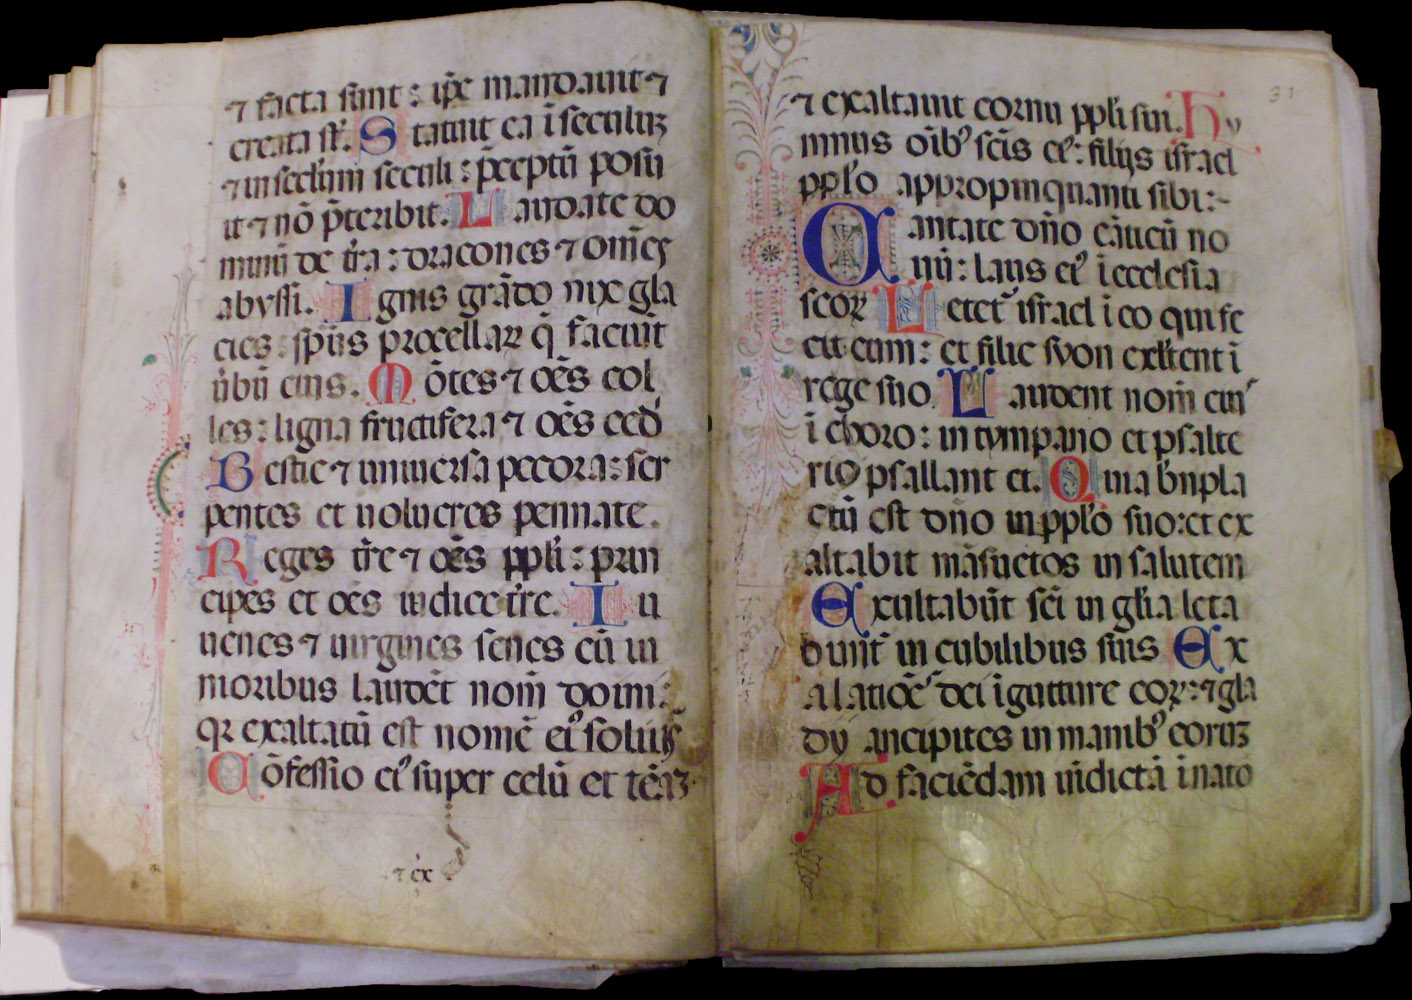 ⁊ facta sũnt : ip̃e mandauit ⁊
creata st̃. Statuit ea ĩ seculuʒ
⁊ in secl̃um seculi : p̃ceptũ posu
it ⁊ nõ p̃teribit. Laudate do
minũ de tr̃a : dracones ⁊ om̃es
abyssi. Ignis grãdo nix gla
cies : sp̃us procellaꝝ q̃ faciũt
ũbũ eius. Mõtes ⁊ oẽs col
les : ligna fructifera ⁊ oẽs ced̃
Bestie ⁊ uniuersa pecora : ser
pentes et uolucres pennate.
Reges tr̃e ⁊ oẽs ppl̃i : prin
cipes et oẽs iudices tr̃e. Iu
uenes ⁊ uirgines senes cũ iu
nioribus laudẽt nom̃ domĩ :
qꝛ exaltatũ est nomẽ eiꝰ soliuſ
Cõfessio eiꝰ super celũ et tẽrã
⁊ ex
31
⁊ exaltauit cornu ppli sui. Hy
mnus oĩbꝰ scĩs eiꝰ : filijs israel
ppl̃o appropinquanti sibi :-
Cantate dño cãticũ no
uũ : laus eiꝰ ĩ ecclesia
scoꝝ Letet̃ israel ĩ eo qui fe
cit eum : et filie syon exl̃tent ĩ
rege suo Laudent nom̃ eiuꝰ
ĩ choro : in tympano et psalte
rio psallant ei. Quia bñpla
citũ est dño in ppl̃o suo : et ex
altabit mãsuetos in salutem
Exultabũt sc̃i in gl̃ia leta
bunt̃ in cubilibus suis Ex
alatiões dei ĩ gutture eoꝝ : ⁊ gla
dy ancipites in manibꝰ eoruʒ
Ad faciẽdam uĩdictã ĩ natõ